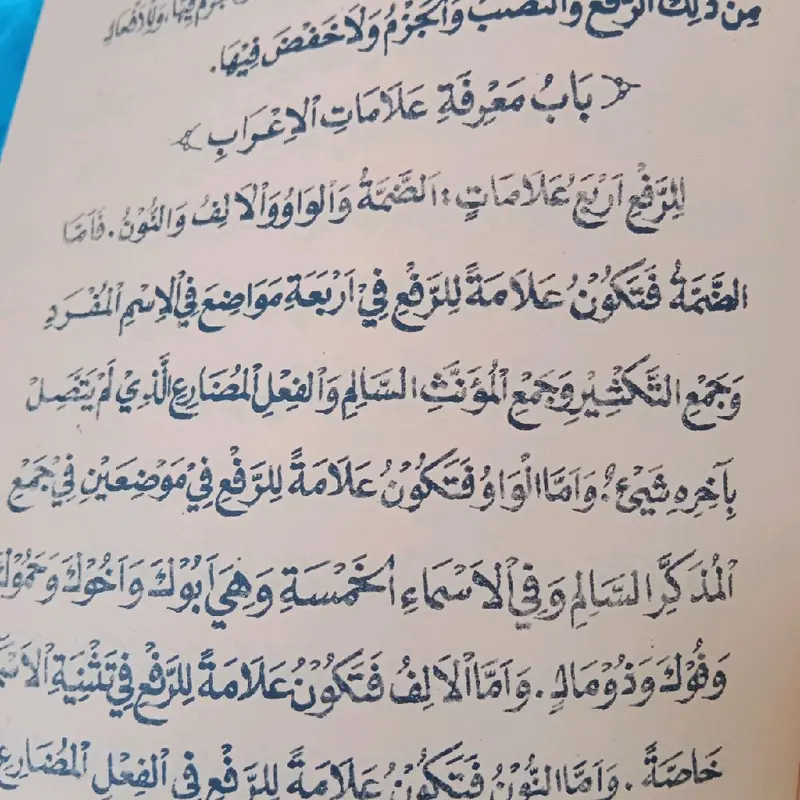 مِنْ ذٰلِكَ الرَّفْعُ وَالنَّصْبُ وَالْجَزْمُ وَلَا خَفْضَ فِيْهَا.
﴿ بَابُ مَعْرِفَةِ عَلَامَاتِ الْاِعْرَابِ ﴾
لِلرَّفْعِ اَرْبَعُ عَلَامَاتٍ : اَلضَّمَّةُ وَالْوَاوُ وَالْاَلِفُ وَالنُّوْنُ . فَاَمَّا
الضَّمَّةُ فَتَكُوْنُ عَلَامَةً لِلرَّفْعِ فِيْ اَرْبَعَةِ مَوَاضِعَ فِي الْاِسْمِ الْمُفْرَدِ
وَجَمْعِ التَّكْسِيْرِ وَجَمْعِ الْمُؤَنَّثِ السَّالِمِ وَالْفِعْلِ الْمُضَارِعِ الَّذِيْ لَمْ يَتَّصِلْ
بِاٰخِرِهِ شَيْئٌ . وَاَمَّا الْوَاوُ فَتَكُوْنُ عَلَامَةً لِلرَّفْعِ فِيْ مَوْضِعَيْنِ فِيْ جَمْعِ
الْمُذَكَّرِ السَّالِمِ وَفِي الْاَسْمَاءِ الْخَمْسَةِ وَهِيَ اَبُوْكَ وَاَخُوْكَ وَحَمُوْكَ
وَفُوْكَ وَذُوْمَالٍ . وَاَمَّا الْاَلِفُ فَتَكُوْنُ عَلَامَةً لِلرَّفْعِ فِيْ تَثْنِيَةِ
خَاصَّةً . وَاَمَّا النُّوْنُ فَتَكُوْنُ عَلَامَةً لِلرَّفْعِ فِي الْفِعْلِ الْمُضَارِعِ